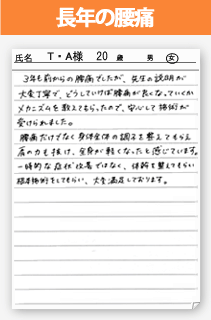 長年の腰痛
氏名 T・A様 20 歳 男 女
3年も前からの腰痛でしたが、先生の説明が
大変丁寧で、どうしていけば腰痛が良くなっていくか
メカニズムを教えてもらったので、安心して施術が
受けられました。
腰痛だけでなく身体全体の調子を整えてもらえ
肩の力も抜け、全身が軽くなったと感じています。
一時的な症状改善ではなく、体幹を整えてもらい
根本施術をしてもらい、大変満足しております。